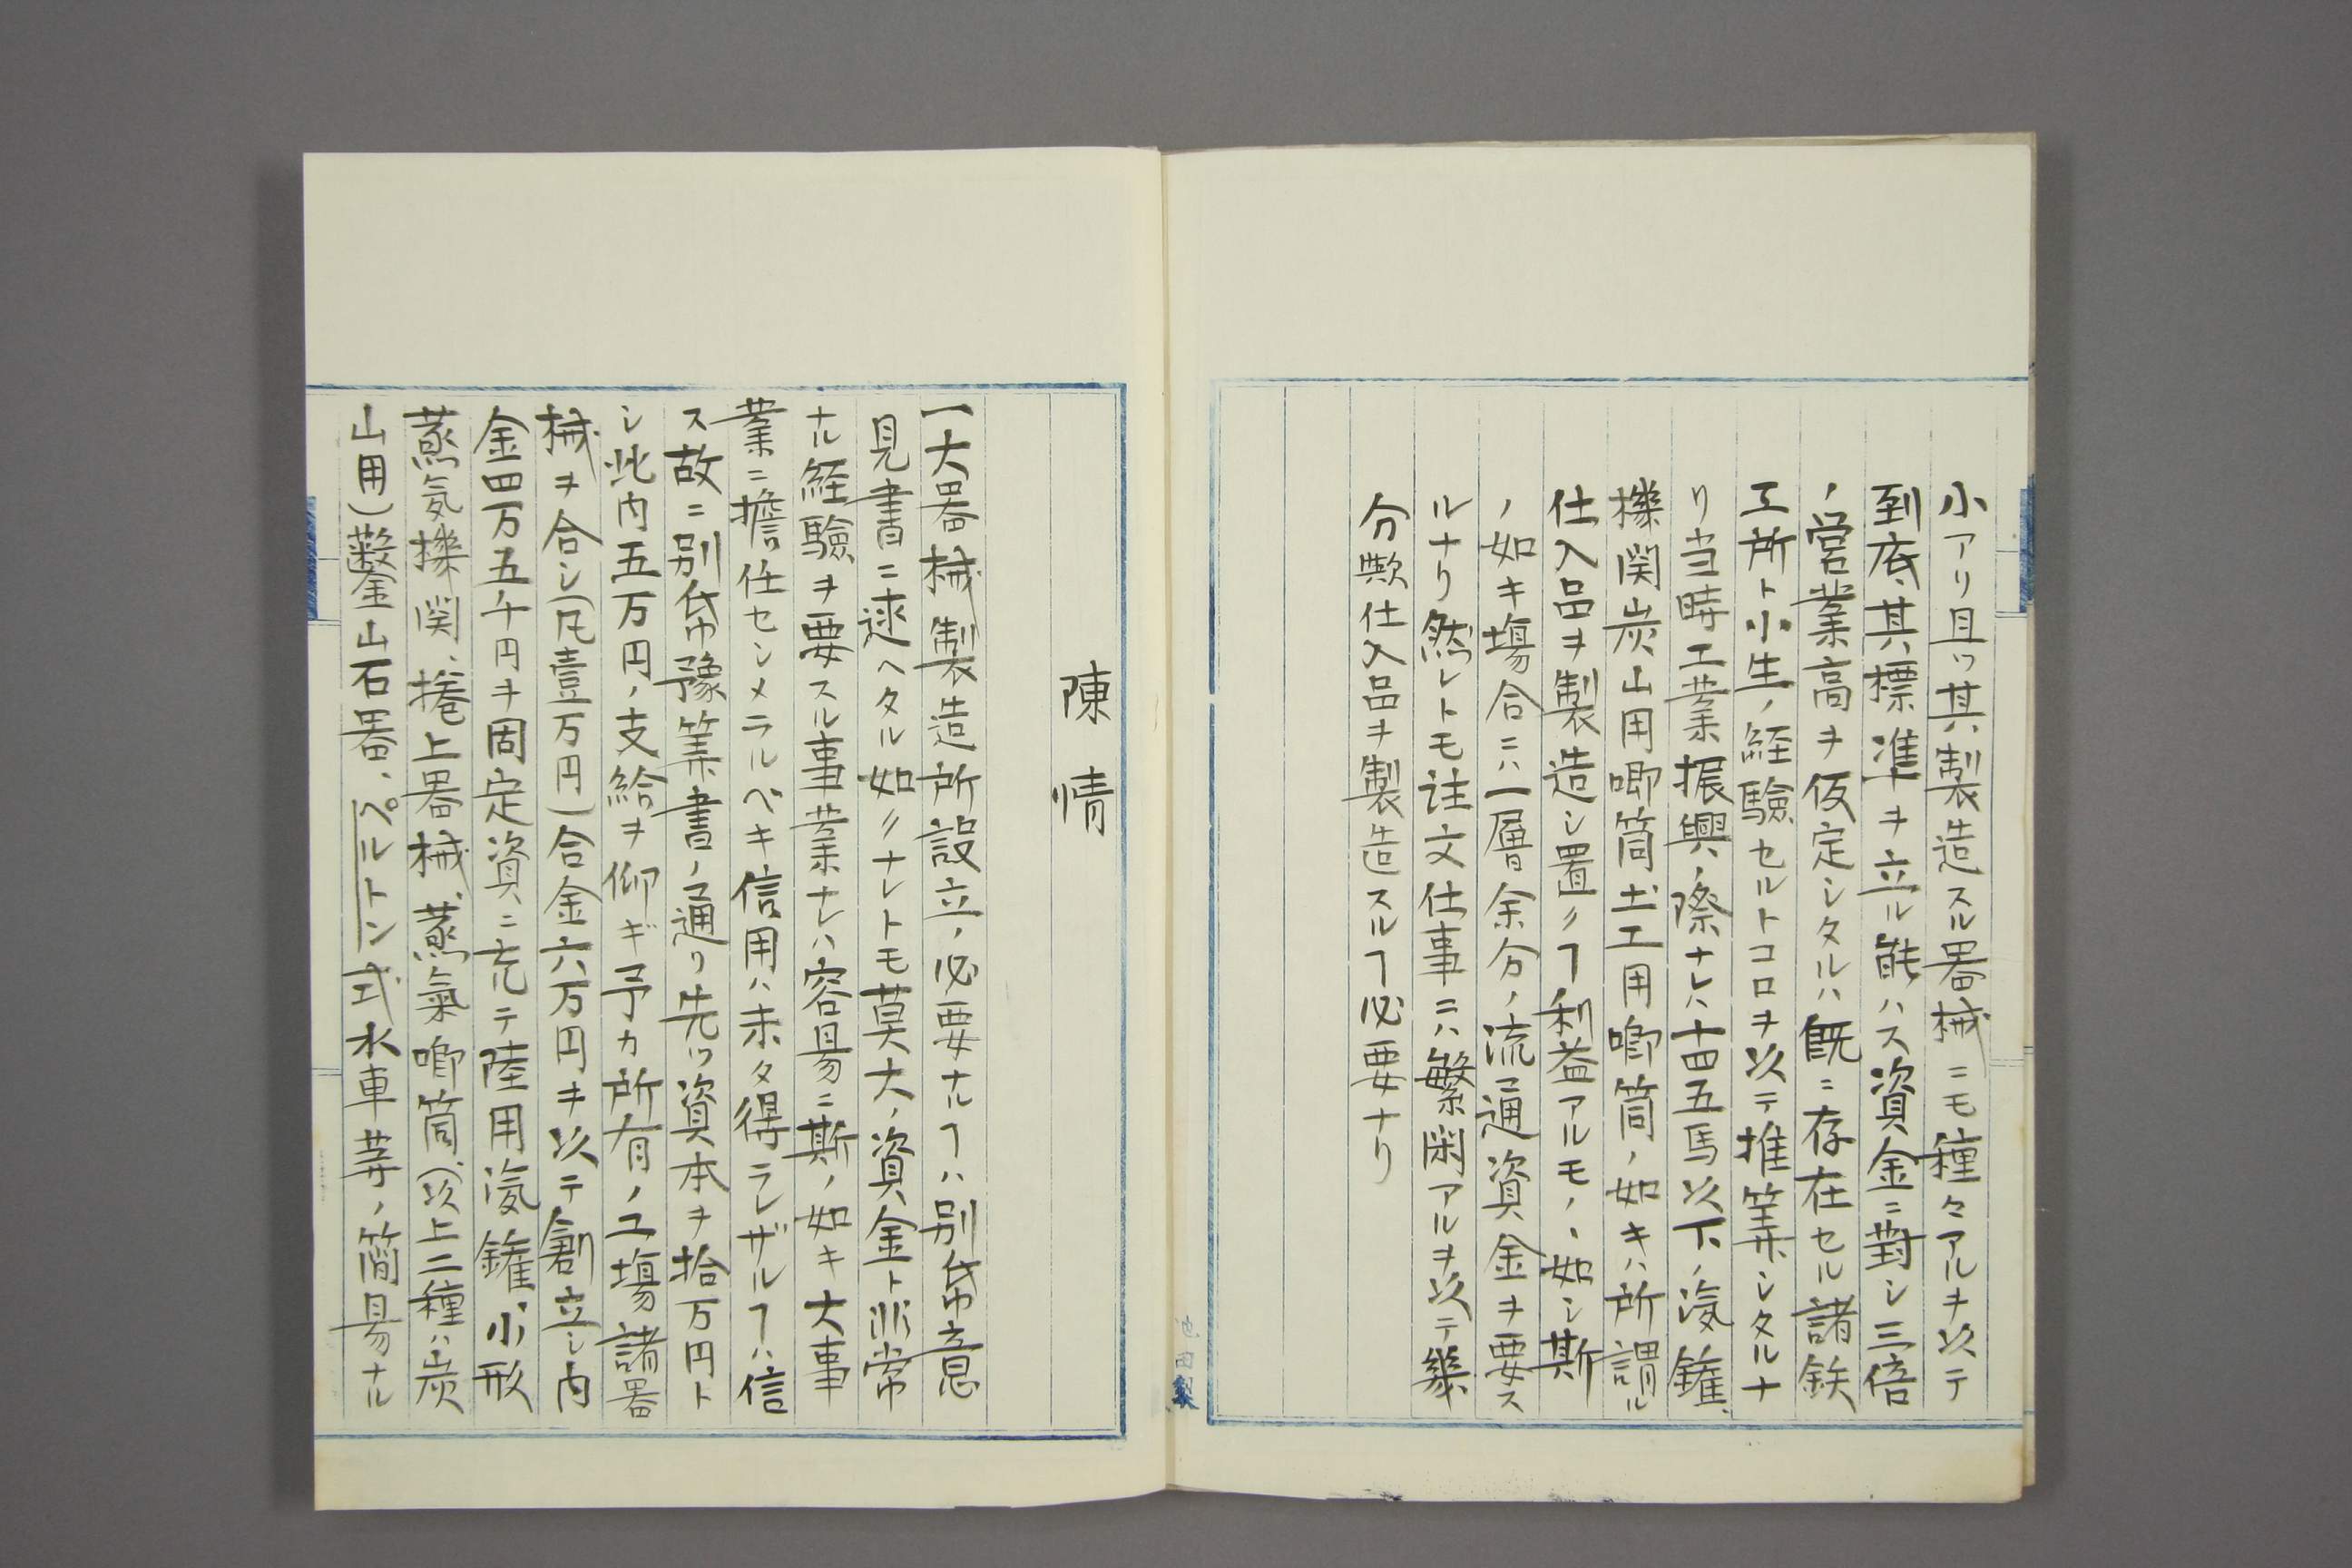 小アリ且ツ其製造スル器械ニモ種々アルヲ以テ
到底其標準ヲ立ル能ハス資金ニ對シ三倍
ノ営業高ヲ仮定シタルハ既ニ存在セル諸鉄
工所ト小生ノ経験セルトコロヲ以テ推筭シタルナ
リ当時工業振興ノ際ナレハ十四五馬以下ノ滊鑵、
機関炭山用喞筒土工用喞筒ノ如キハ所謂ル
仕入品ヲ製造シ置クヿ利益アルモノヽ如シ斯
ノ如キ場合ニハ一層余分ノ流通資金ヲ要ス
ルナリ然レトモ註文仕事ニハ繁閑アルヲ以テ幾
分歟仕入品ヲ製造スルヿ必要ナリ
陳情
一大器械製造所設立ノ必要ナルヿハ別帋意
見書ニ逑ヘタル如クナレトモ莫大ノ資金ト非常
ナル経驗ヲ要スル事業ナレハ容易ニ斯ノ如キ大事
業ニ擔任セシメラルベキ信用ハ未タ得ラレザルヿハ信
ス故ニ別帋豫筭書ノ通リ先ツ資本ヲ拾万円ト
シ此内五万円ノ支給ヲ仰ギ予カ所有ノ工場諸器
械ヲ合シ(凡壹万円)合金六万円ヲ以テ創立シ内
金四万五千円ヲ固定資ニ充テ陸用滊鑵小形
蒸気機関、捲上器械、蒸氣喞筒(以上二種ハ炭
山用)鑿山石器、ペルトン式水車等ノ簡易ナル